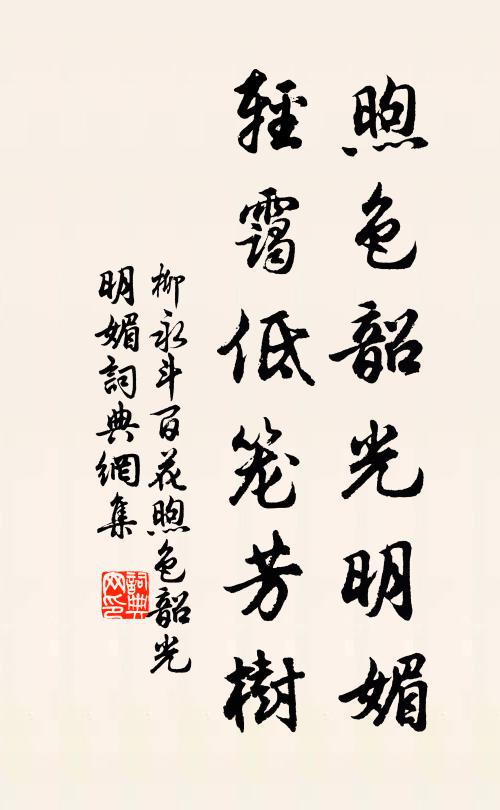 煦色韶光明媚
輕靄低笼芳樹
柳永斗百花煦色韶光
明媚詞典網集
詞典
网印